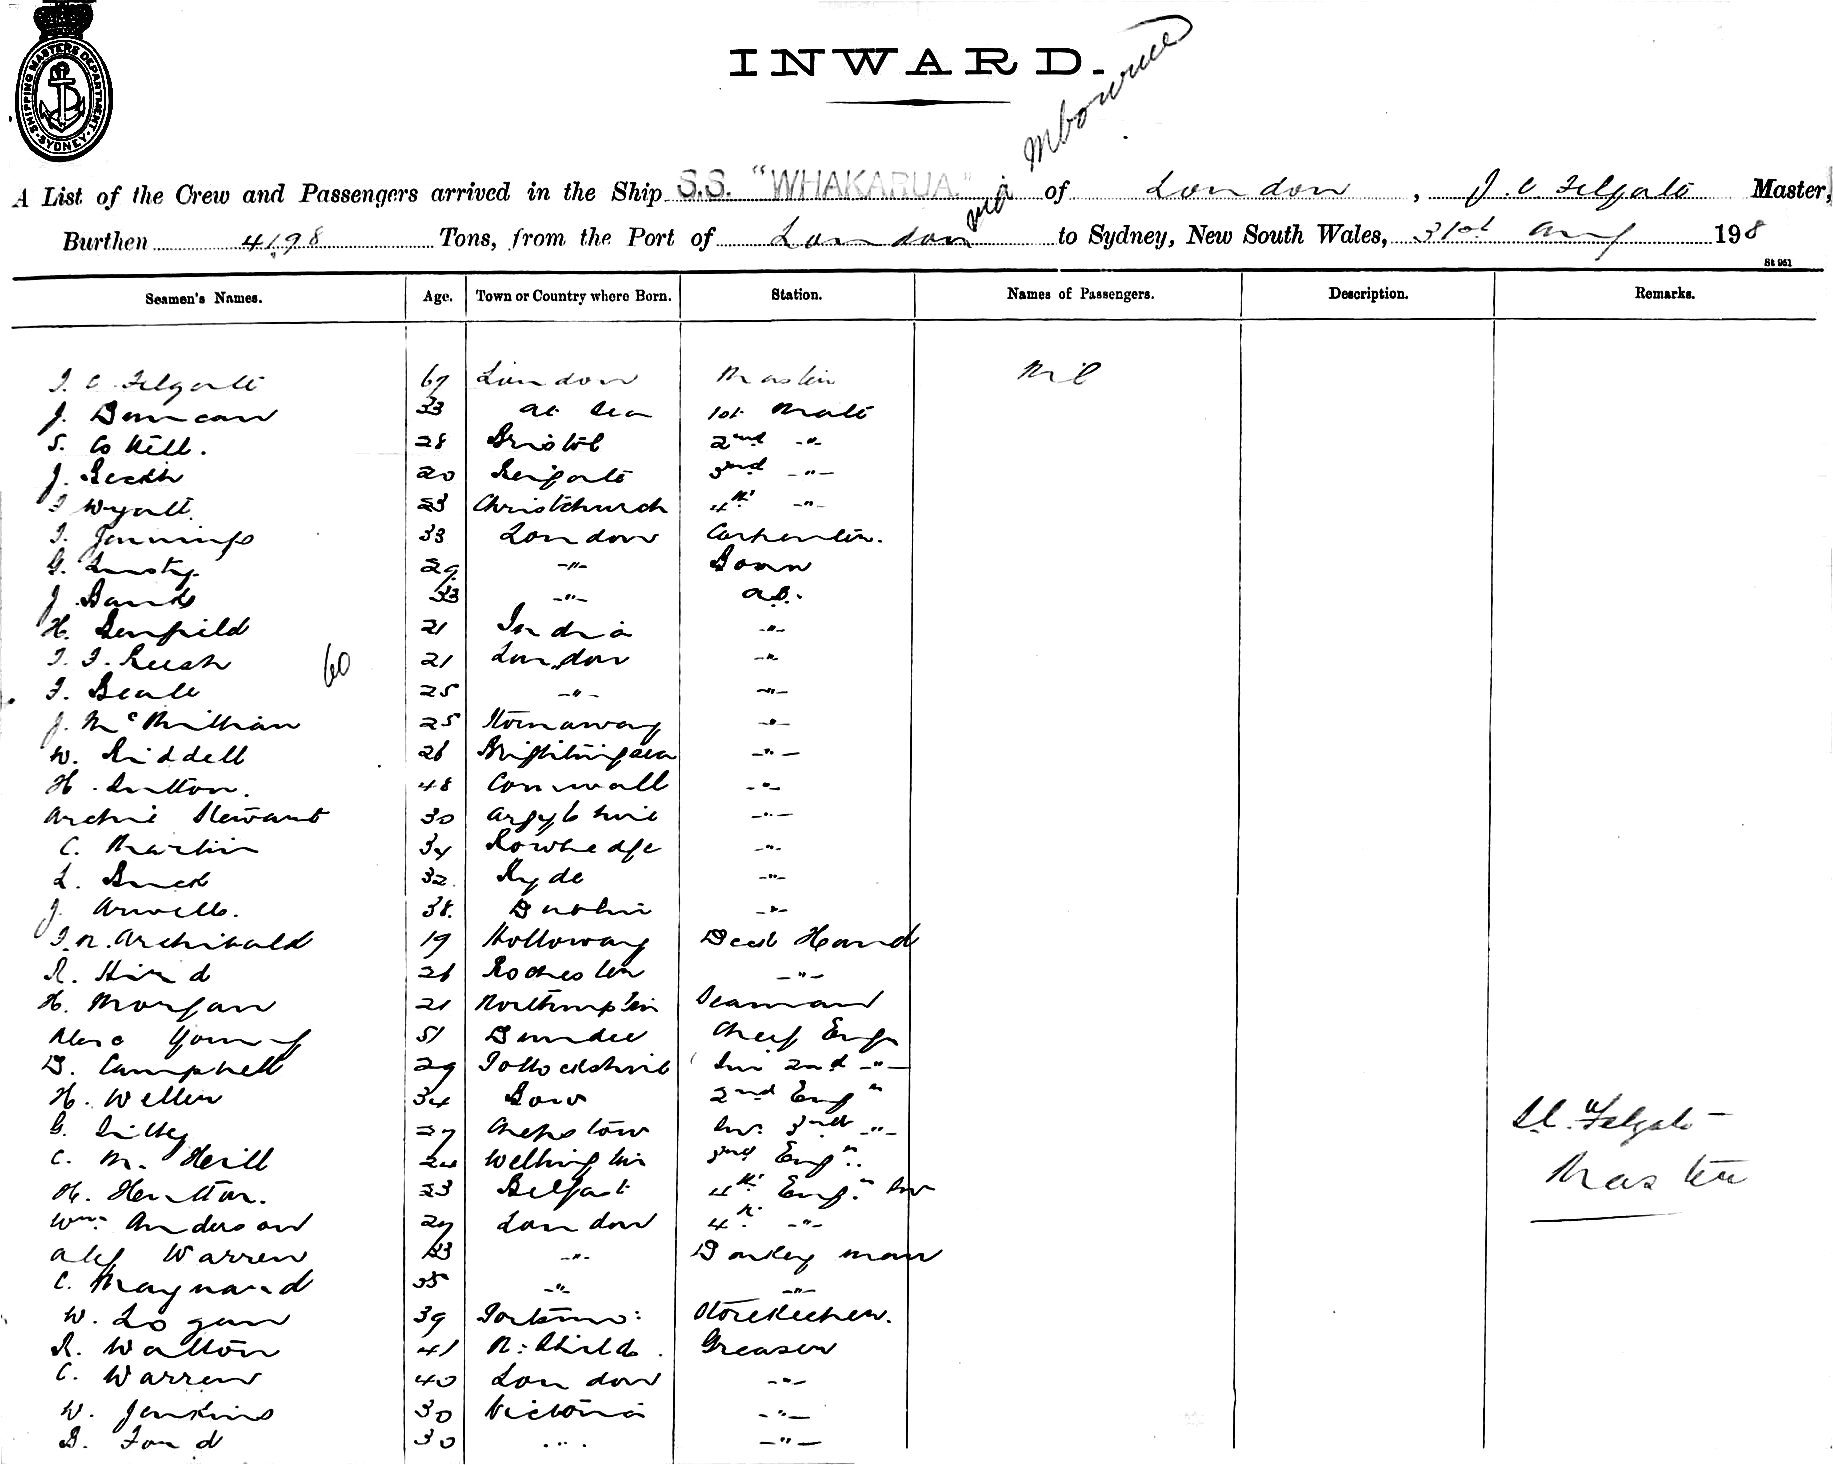 SHIPPING MASTERS DEPARTMENT SYDNEY
INWARD.
A List of the Crew and Passengers arrived in the Ship S.S. "WHAKARUA." of London, J. C Felgate Master,
via Mbourne
Burthen 4198 Tons, from the Port of London to Sydney, New South Wales, 31st Aug 198
St 951
Seamen's Names. Age. Town or Country where Born. Station. Names of Passengers. Description. Remarks.
J. C. Felgate 67 London Master Nil
J. Duncan 33 at Sea 1st Mate
S. 28 Bristol 2nd -"-
J. 20 Reigate 3rd -"-
Wyatt. 23 Christchurch 4th -"-
Jennings 33 London Carpenter.
G. 29 -"- Bosn
J. 33 -"- a.b.
H. Benfield 21 India -"-
21 London -"-
Beale 25 -"- -"-
J. McMillian 25 Stornaway -"-
W. Riddell 26 Brightlingsea -"-
H. Sutton. 48 Cornwall -"-
Archie Stewart 30 Argyleshire -"-
C. Martin 34 Rowhedge -"-
L. 32. Ryde -"-
J. 38. Dublin -"-
Archibald 19 Holloway Deck Hand
R. Hird 26 Rochester -"-
H. Morgan 21 Northmpton Seaman
Young 51 Dundee Cheif Eng
D. Campbell 29 Jun 2nd -"-
H. Weller 34 Bow 2nd Eng "
G. 27 Chepstow Jun. 3rd -"-
C. M. 24 Wellington 3rd Eng "
H. 23 Belfast 4th Eng " Jun
Wm. Anderson 29 London 4th -"-
Alf Warren 33 -"- Donkey man
C. Maynard 35 -"- -"-
W. Logan 39 Storekeeper.
R. Walton 41 N. Shields. Greaser
C. Warren 40 London -"-
W. Jenkins 30 Victoria -"-
Ford 30 -"- -"-
60
Felgate
Master